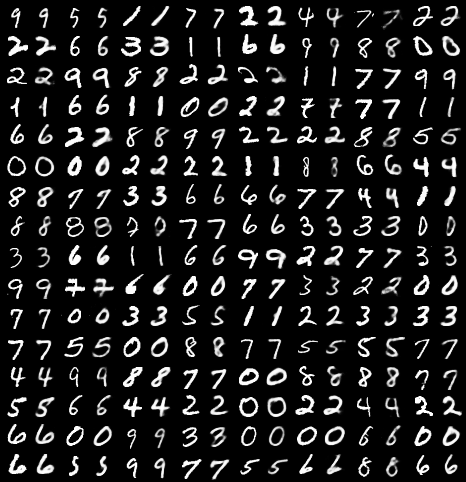 9 9 5 5 1 1 7 7 2 2 4 4 7 7 2 2
2 2 6 6 3 3 1 1 6 6 9 9 8 8 0 0
2 2 9 9 8 8 2 2 2 2 1 1 7 7 9 9
1 1 6 6 1 1 0 0 2 2 7 7 7 7 1 1
6 6 2 2 8 8 9 9 2 2 2 2 8 8 5 5
0 0 0 0 2 2 2 2 1 1 8 8 6 6 4 4
8 8 7 7 3 3 6 6 6 6 7 7 4 4 1 1
8 8 8 8 7 7 6 6 3 3 3 3 0 0
3 3 6 6 1 1 6 6 9 9 2 2 7 7 3 3
9 9 7 7 6 6 0 0 7 7 3 3 2 2 0 0
7 7 0 0 3 3 5 5 1 1 2 2 3 3 3 3
7 7 5 5 0 0 8 8 7 7 5 5 5 5 7 7
4 4 9 9 8 8 7 7 0 0 8 8 8 8 7 7
5 5 6 6 4 4 2 2 0 0 2 2 4 4 2 2
6 6 0 0 9 9 3 3 0 0 0 0 6 6 0 0
6 6 5 5 9 9 7 7 5 5 6 6 8 8 6 6